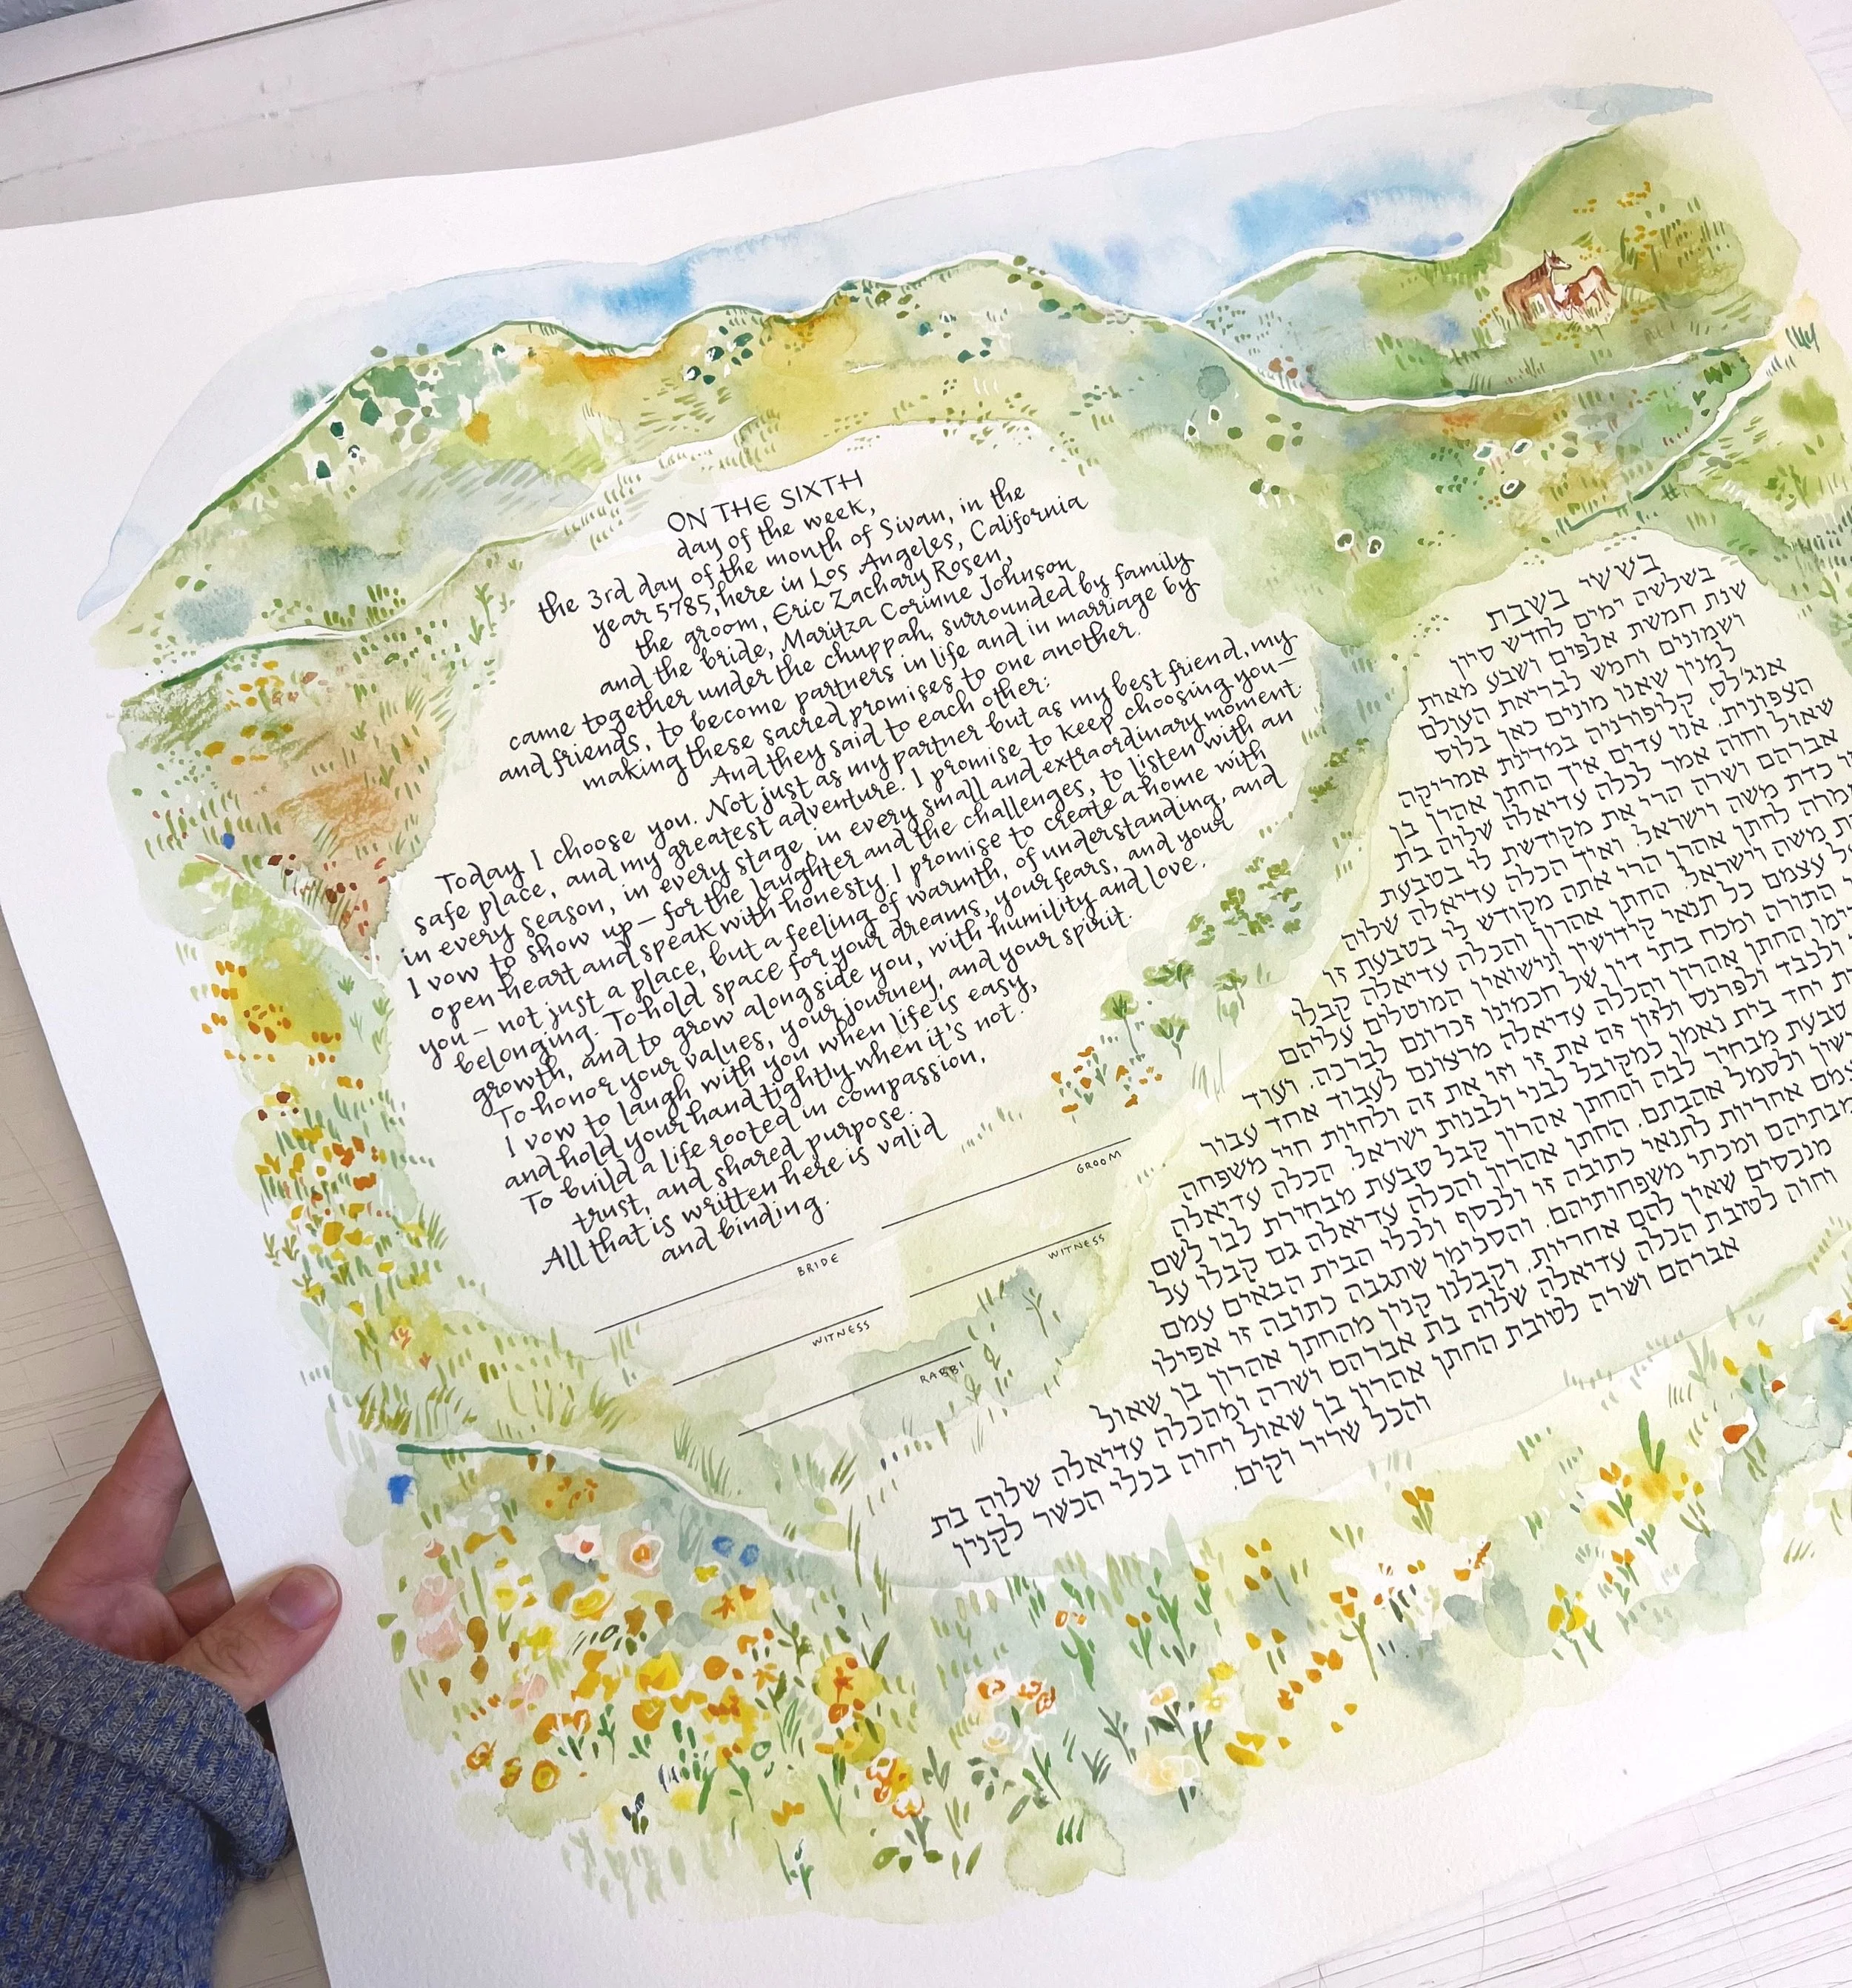 ON THE SIXTH
day of the week,
the 3rd day of the month of Sivan, in the
year 5785, here in Los Angeles, California
the groom, Eric Zachary Rosen,
and the bride, Maritza Corinne Johnson
came together under the chuppah, surrounded by family
and friends, to become partners in life and in marriage by
making these sacred promises to one another.
And they said to each other:
Today I choose you. Not just as my partner but as my best friend, my
safe place, and my greatest adventure. I promise to keep choosing you—
in every season, in every stage, in every small and extraordinary moment.
I vow to show up— for the laughter and the challenges, to listen with an
open heart and speak with honesty. I promise to create a home with
you— not just a place, but a feeling of warmth, of understanding, and
belonging. To hold space for your dreams, your fears, and your
growth, and to grow alongside you, with humility and love.
To honor your values, your journey, and your spirit.
I vow to laugh with you when life is easy,
and hold your hand tightly when it's not.
To build a life rooted in compassion,
trust, and shared purpose.
All that is written here is valid
and binding.
BRIDE
GROOM
WITNESS
WITNESS
RABBI
בששי בשבת
בשלשה ימים לחדש סיון
שנת חמשת אלפים ושבע מאות
ושמונים וחמש לבריאת העולם
למנין שאנו מונים כאן בלוס
אנג'לס, קליפורניה במדינת אמריקה
הצפונית. אנו עדים איך החתן אהרון בן
שאול וחוה אמר לכלה עדיאלה שלוה בת
אברהם ושרה הרי את מקודשת לי בטבעת
כדת משה וישראל. ואיך הכלה עדיאלה שלוה
לחתן אהרון הרי אתה מקודש לי בטבעת זו
משה וישראל. החתן אהרון והכלה עדיאלה קבלו
עצמם כל תנאי קידושין ונישואין המוטלים עליהם
התורה ומכח בתי דין של חכמינו זכרונם לברכה. ועוד
החתן אהרון והכלה עדיאלה מרצונם לעבוד אחד עבור
ולכבד ולפרנס ולזון זה את זו וזו את זה ולחיות חיי משפחה
יחד בית נאמן למקובל לבני ולבנות ישראל. הכלה עדיאלה
מבחיר לבה והחתן אהרון קבל טבעת מבחירת לבו לשם
ולסמל אהבתם. החתן אהרון והכלה עדיאלה גם קבלו על
אחריות לתנאי כתובה זו ולכסף ולכלי הבית הבאים עמם
ומכתי משפחותיהם. והסכימו שתגבה כתובה זו אפילו
מנכסים שאין להם אחריות. וקבלנו קנין מהחתן אהרון בן שאול
וחוה לטובת הכלה עדיאלה שלוה בת אברהם ושרה ומהכלה עדיאלה שלוה בת
אברהם ושרה לטובת החתן אהרון בן שאול וחוה בכלי הכשר לקנין
והכל שריר וקים.